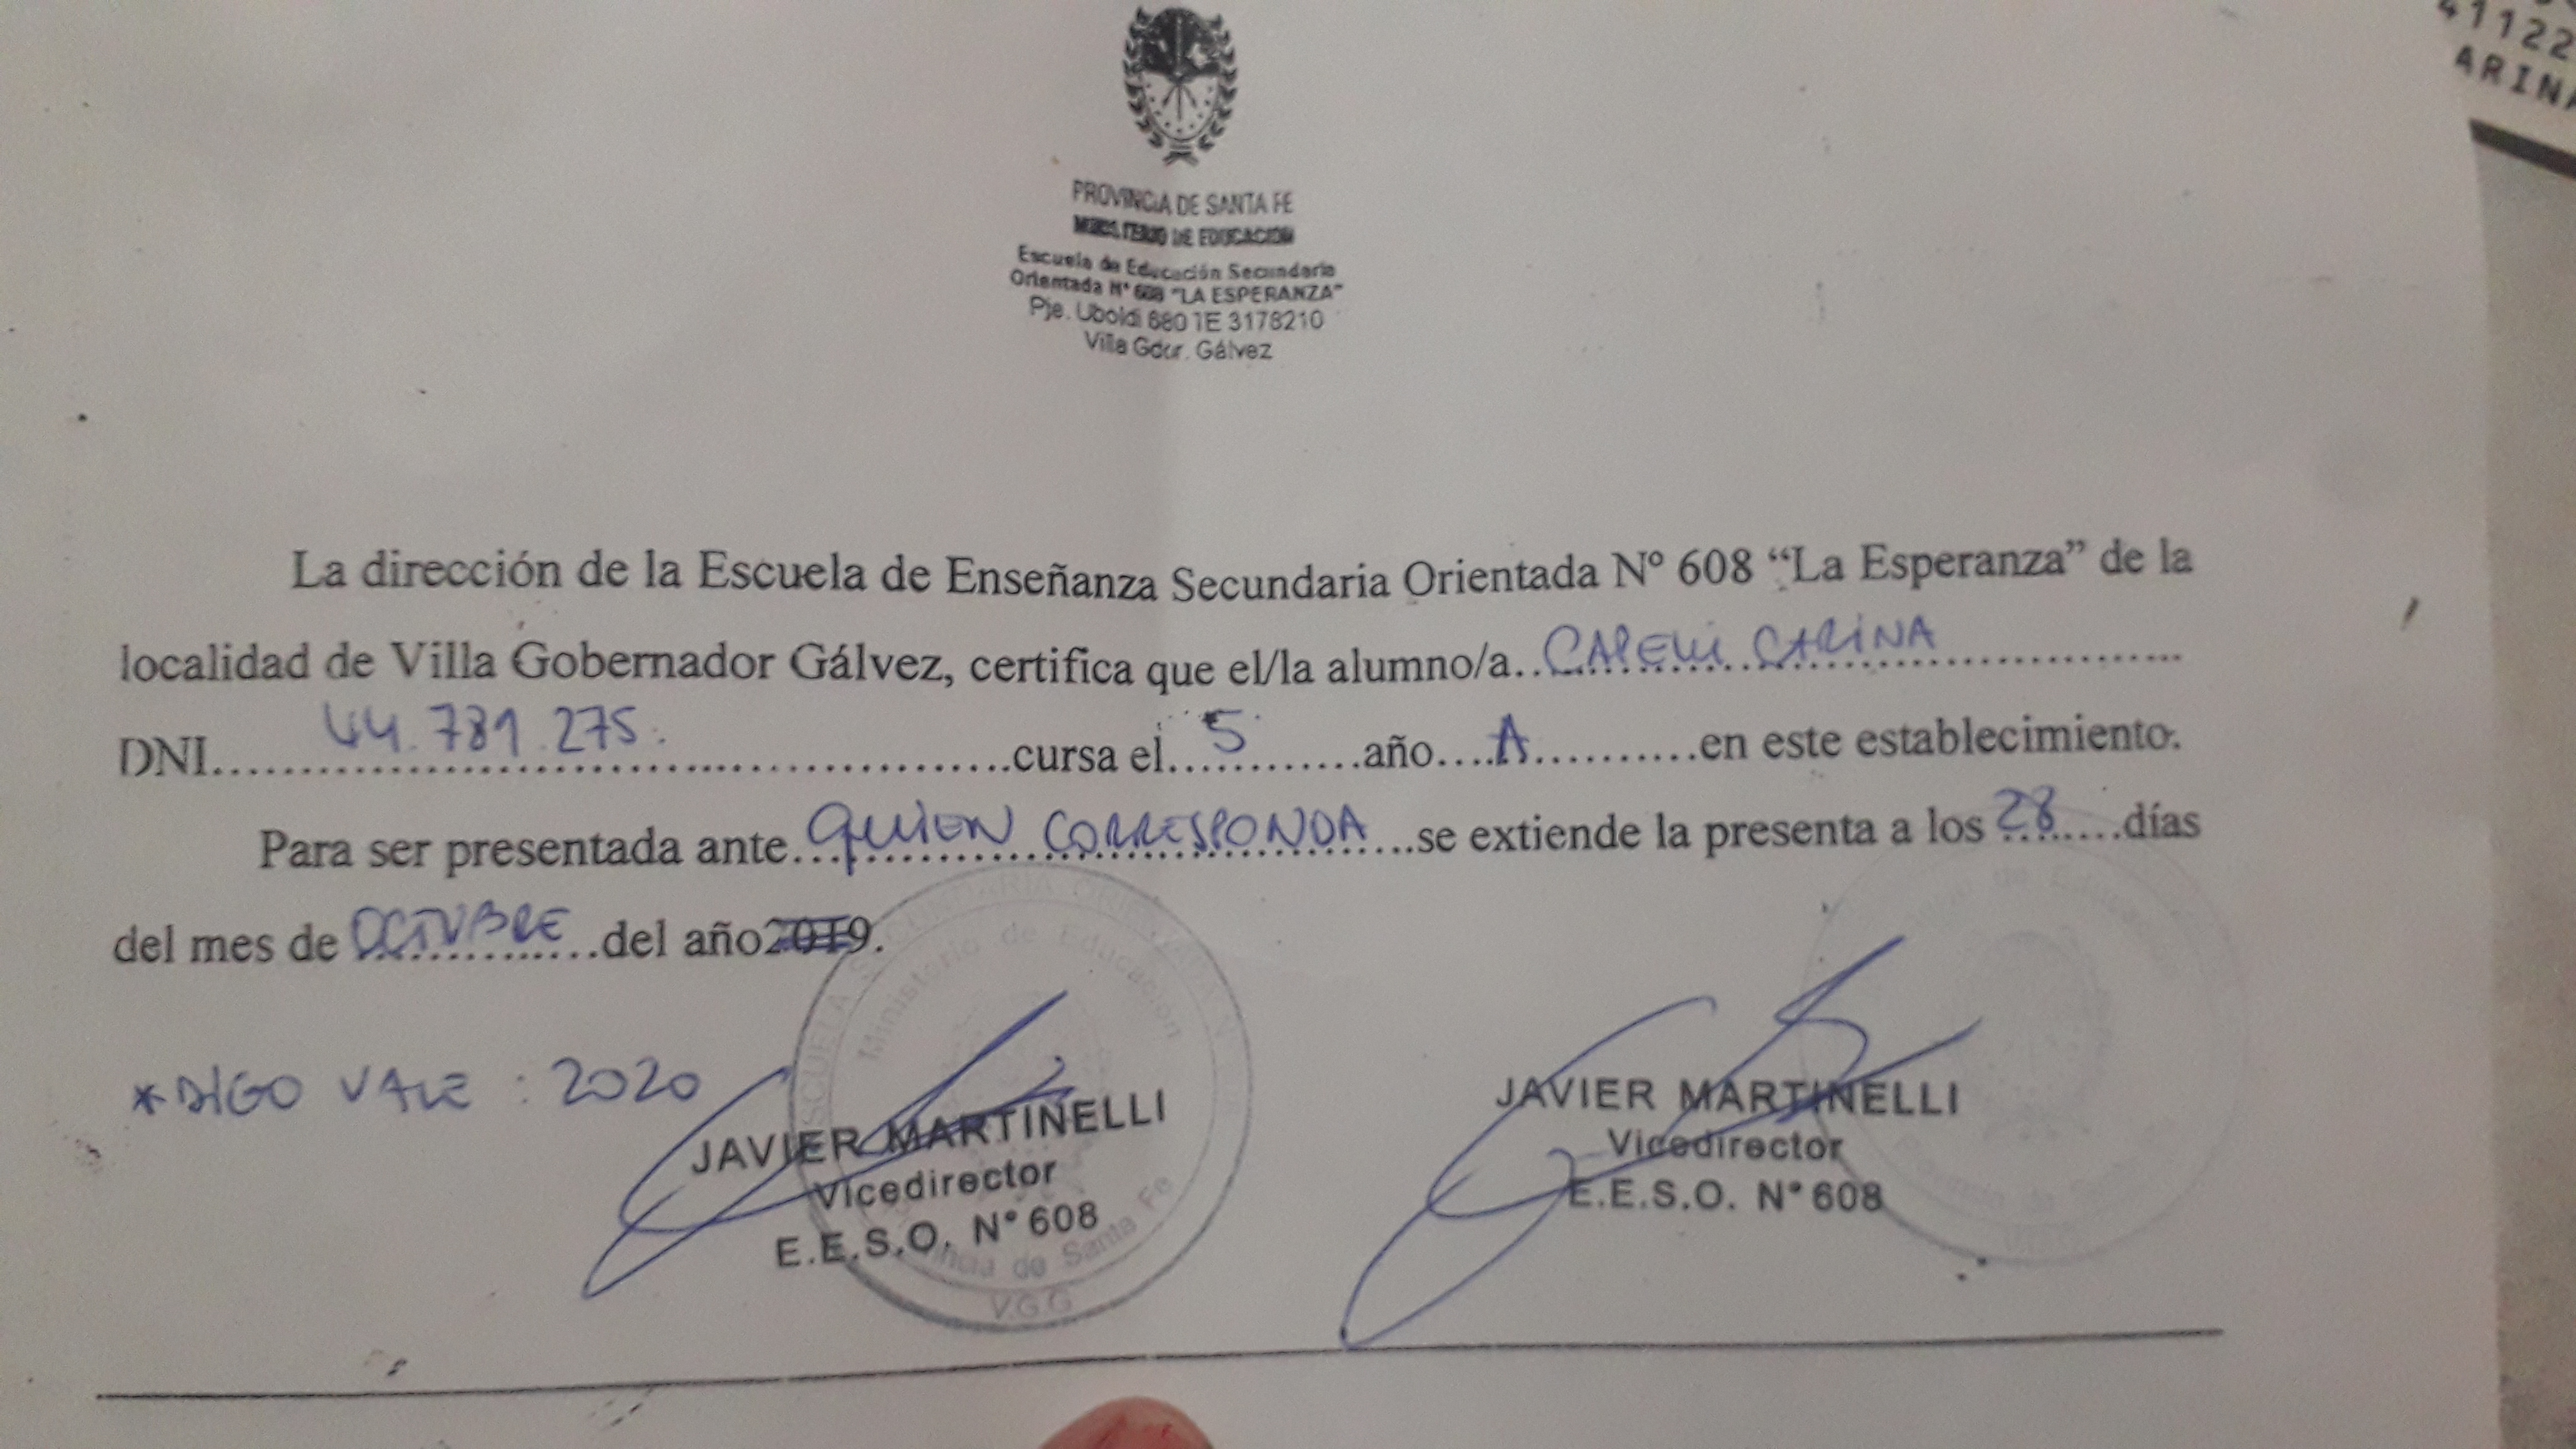 PROVINCIA DE SANTA FE
MINISTERIO DE EDUCACION
Escuela de Educación Secundaria
Orientada N° 608 "LA ESPERANZA"
Pje. Uboldi 680 TE 3178210
Villa Gdor. Gálvez
41122
ARINA
La dirección de la Escuela de Enseñanza Secundaria Orientada Nº 608 “La Esperanza” de la
localidad de Villa Gobernador Gálvez, certifica que el/la alumno/a..CAPELLI CARINA...............
DNI......44.789.275...........cursa el....5.......año....A..........en este establecimiento.
Para ser presentada ante...QUIEN CORRESPONDA...se extiende la presenta a los 28......días
del mes de OCTUBRE....del año2019.
*DIGO VALE : 2020
Ministerio de Educación
Provincia de Santa Fe
V.G.G
JAVIER MARTINELLI
Vicedirector
E.E.S.O. N° 608
JAVIER MARTINELLI
Vicedirector
E.E.S.O. N° 608